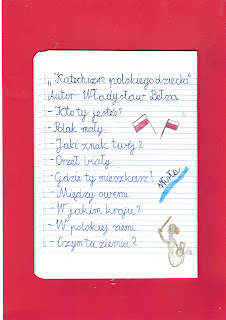 „Katechizm polskiego dziecka"
Autor: Władysław Bełza
- Kto ty jesteś?
- Polak mały.
- Jaki znak twój?
- Orzeł biały.
- Gdzie ty mieszkasz?
- Między swemi.
- W jakim kraju?
- W polskiej ziemi.
- Czym ta ziemia?
Wisła